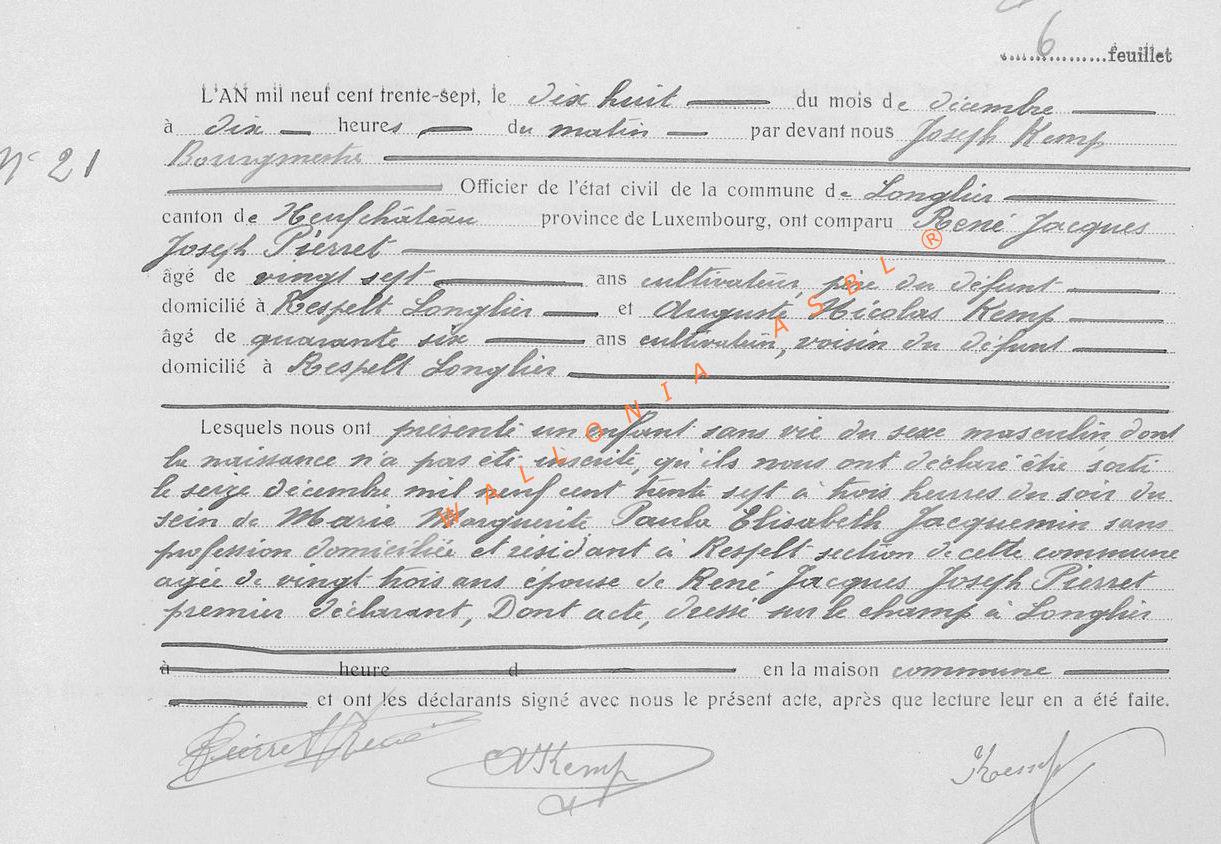 6 feuillet
L'AN mil neuf cent trente-sept, le dix huit du mois de décembre
à dix heures du matin par devant nous Joseph Kemp
N° 21
Bourgmestre
Officier de l'état civil de la commune de Longlier
canton de Neufchâteau province de Luxembourg, ont comparu René Jacques
Joseph Pierret
âgé de vingt sept ans cultivateur, père du défunt
domicilié à Respelt Longlier et Auguste Nicolas Kemp
âgé de quarante six ans cultivateur, voisin du défunt
domicilié à Respelt Longlier
Lesquels nous ont présenté un enfant sans vie du sexe masculin dont
la naissance n'a pas été inscrite, qu'ils nous ont déclaré être sorti
le seize décembre mil neuf cent trente sept à trois heures du soir du
sein de Marie Marguerite Paula Elisabeth Jacquemin sans
profession domiciliée et résidant à Respelt section de cette commune
agée de vingt trois ans épouse de René Jacques Joseph Pierret
premier déclarant, Dont acte, dressé sur le champ à Longlier
à heure d en la maison commune
et ont les déclarants signé avec nous le présent acte, après que lecture leur en a été faite.
Pierret René A Kemp
WALLONIA ASBL ®